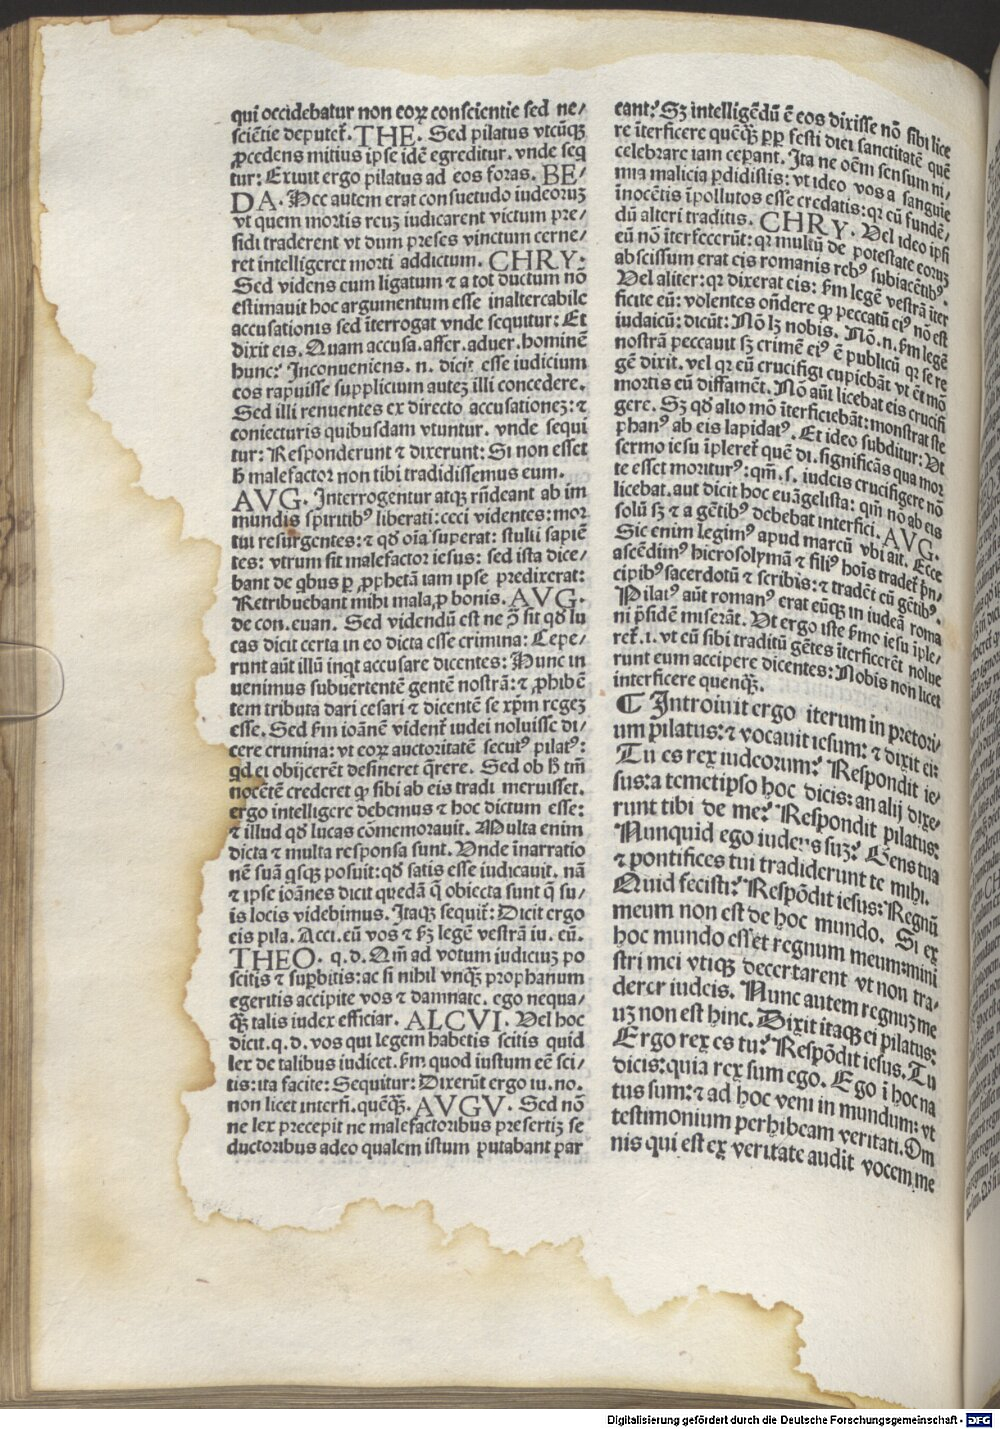 qui occidebatur non eoꝝ conscientie sed ne/
sciẽtie deputet᷑. THE. Sed pilatus vtcũqꝫ
ꝓcedens mitius ip̃e idẽ egreditur. vnde seq
tur: Exiuit ergo pilatus ad eos foras. BE/
DA. Hec autem erat consuetudo iudeoruꝫ
vt quem mortis reuꝫ iudicarent victum pre/
sidi traderent vt dum preses vinctum cerne/
ret intelligeret morti addictum. CHRY:
Sed videns eum ligatum ⁊ a tot ductum nõ
estimauit hoc argumentum esse inaltercabile
accusationis sed ĩterrogat vnde sequitur: Et
dixit eis. Quam accusa. affer. aduer. hominẽ
hunc? Inconueniens. n. dicit esse iudicium
eos rapuisse supplicium auteꝫ illi concedere.
Sed illi renuentes ex directo accusationeꝫ: ⁊
coniecturis quibusdam vtuntur. vnde sequi
tur: Responderunt ⁊ dixerunt: Si non esset
h̃ malefactor non tibi tradidissemus eum.
AVG. Interrogentur atqꝫ rñdeant ab im
mundis spiritibꝰ liberati: ceci videntes: mor
tui resurgentes: ⁊ qđ oĩa superat: stulti sapiẽ
tes: vtrum sit malefactor iesus: sed ista dice/
bant de qbus ꝑ ꝓphetã iam ipse predixerat:
Retribuebant mihi mala ꝓ bonis. AVG.
de con. euan. Sed videndũ est ne ꝯ̃ sit qđ lu
cas dicit certa in eo dicta esse crimina: Cepe/
runt aũt illũ inqt accusare dicentes: Hunc in
uenimus subuertentẽ gentẽ nostrã: ⁊ ꝓhibẽ
tem tributa dari cesari ⁊ dicentẽ se xp̃m regeꝫ
esse. Sed ẜm ioãnẽ vident᷑ iudei noluisse di/
cere crimina: vt eoꝝ auctoritatẽ secutꝰ pilatꝰ:
qd ei obijcerẽt desineret q̃rere. Sed ob h̃ tm̃
nocẽtẽ crederet ꝙ sibi ab eis tradi meruisset.
ergo intelligere debemus ⁊ hoc dictum esse:
⁊ illud qđ lucas cõmemorauit. Multa enim
dicta ⁊ multa responsa sunt. Vnde ĩnarratio
nẽ suã qsqꝫ posuit: qđ satis esse iudicauit. nã
⁊ ipse ioãnes dicit quedã q̃ obiecta sunt q̃ su/
is locis videbimus. Itaqꝫ sequit᷑: Dicit ergo
eis pila. Acci. eũ vos ⁊ ẜꝫ legẽ vestrã iu. eũ.
THEO. q. d. Qm̃ ad votum iudiciuꝫ po
scitis ⁊ suꝑbitis: ac si nihil vnqꝫ̃ prophanum
egeritis accipite vos ⁊ damnate. ego nequa/
qꝫ̃ talis iudex efficiar. ALCVI. Vel hoc
dicit. q. d. vos qui legem habetis scitis quid
lex de talibus iudicet. ẜm quod iustum eẽ sci/
tis: ita facite: Sequitur: Dixerũt ergo iu. no.
non licet interfi. quẽqꝫ̃. AVGV. Sed nõ
ne lex precepit ne malefactoribus presertiꝫ se
ductoribus adeo qualem istum putabant par
cant? Sꝫ intelligẽdũ ẽ eos dixisse nõ sibi lice
re ĩterficere quẽqꝫ̃ ꝑꝑ festi diei sanctitatẽ quẽ
celebrare iam ceperant. Ita ne oẽm sensum ni/
mia malicia ꝑdidistis: vt ideo vos a sanguie
ĩnocẽtis ĩpollutos esse credatis: qꝛ eũ fundẽ/
dũ alteri traditis. CHRY. Vel ideo ipsi
eũ nõ ĩterfecerũt: qꝛ multũ de potestate eoruꝫ
abscissum erat eis romanis rebꝰ subiacẽtibꝰ.
Vel aliter: qꝛ dixerat eis: ẜm legẽ vestrã ĩter
ficite eũ: volentes oñdere ꝙ peccatũ eiꝰ nõ est
iudaicũ: dicũt: Nõ lꝫ nobis. Nõ. n. ẜm legẽ
nostrã peccauit sꝫ crimẽ eiꝰ ẽ publicũ qꝛ se re
gẽ dixit. vel qꝛ eũ crucifigi cupiebãt vt ẽt mõ
mortis eũ diffamẽt. Nõ aũt licebat eis crucifi
gere. Sꝫ qđ alio mõ ĩterficiebãt: monstrat ste
phanꝰ ab eis lapidatꝰ. Et ideo subditur: Vt
sermo iesu ĩpleret᷑ quẽ di. significãs qua mor
te esset moriturꝰ: qm̃. s. iudeis crucifigere nõ
licebat. aut dicit hoc euãgelista: qm̃ no ab eis
solũ sꝫ ⁊ a gẽtibꝰ debebat interfici. AVG.
Sic enim legimꝰ apud marcũ vbi ait. Ecce
ascẽdimꝰ hierosolymã ⁊ filiꝰ hoĩs tradet᷑ p̃n/
cipibꝰ sacerdotũ ⁊ scribis: ⁊ tradẽt eũ gẽtibꝰ.
Pilatꝰ aũt romanꝰ erat eũqꝫ in iudeã roma
ni p̃sidẽ miserãt. Vt ergo iste ẜmo iesu ĩple/
ret᷑. i. vt eũ sibi traditũ gẽtes ĩterficerẽt nolue
runt eum accipere dicentes: Nobis non licet
interficere quenqꝫ̃.
¶ Introiuit ergo iterum in pretori/
um pilatus: ⁊ vocauit iesum: ⁊ dixit ei:
Tu es rex iudeorum? Respondit ie/
sus: a temetipso hoc dicis: an alij dixe/
runt tibi de me? Respondit pilatus:
Nunquid ego iudeus suꝫ? Gens tua
⁊ pontifices tui tradiderunt te mihi.
Quid fecisti? Respõdit iesus: Regnũ
meum non est de hoc mundo. Si ex
hoc mundo esset regnum meum: mini
stri mei vtiqꝫ decertarent vt non tra/
derer iudeis. Nunc autem regnuꝫ me
uꝫ non est hinc. Dixit itaqꝫ ei pilatus:
Ergo rex es tu? Respõdit iesus. Tu
dicis: quia rex sum ego. Ego ĩ hoc na
tus sum: ⁊ ad hoc veni in mundum: vt
testimonium perhibeam veritati. Om
nis qui est ex veritate audit vocem me
Digitalisierung gefördert durch die Deutsche Forschungsgemeinschaft - DFG